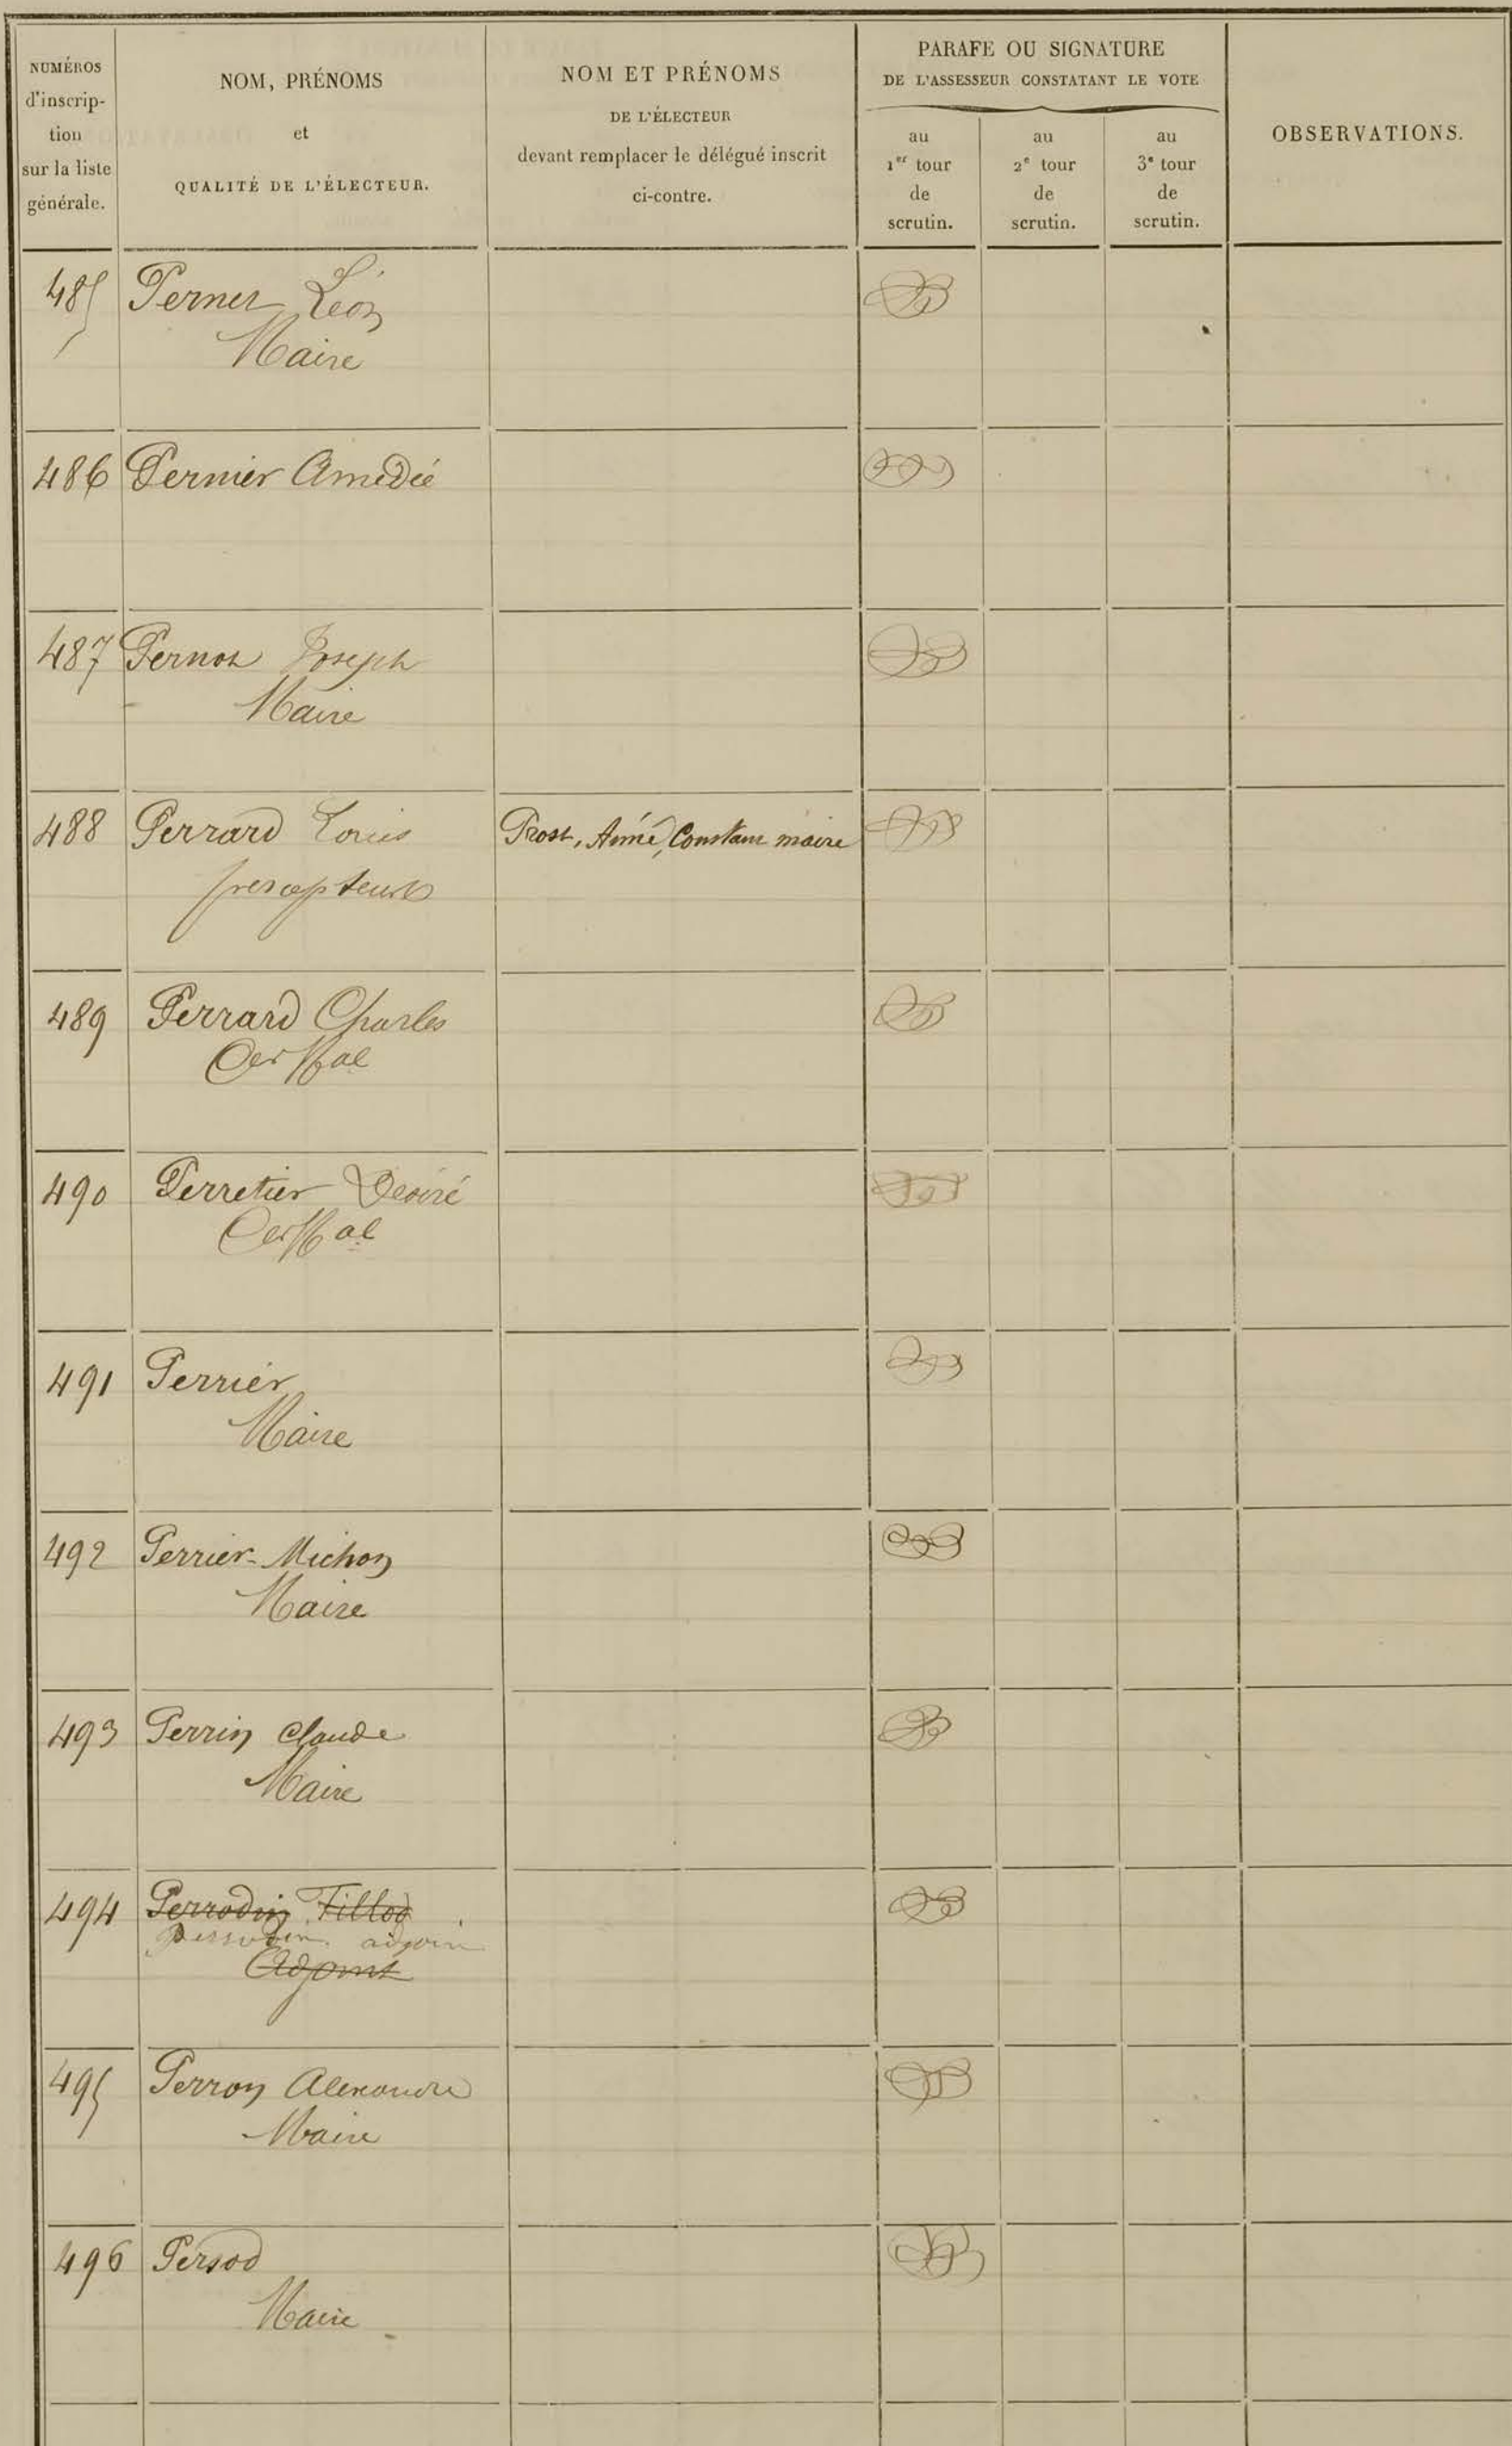 NUMÉROS
d'inscrip-
tion
sur la liste
générale.
NOM, PRÉNOMS
et
QUALITÉ DE L'ÉLECTEUR.
NOM ET PRÉNOMS
DE L'ÉLECTEUR
devant remplacer le délégué inscrit
ci-contre.
PARAFE OU SIGNATURE
DE L'ASSESSEUR CONSTATANT LE VOTE
au
1er tour
de
scrutin.
au
2e tour
de
scrutin.
au
3e tour
de
scrutin.
OBSERVATIONS.
485 Pernet Léon
Maire
486 Pernier Amedée
487 Pernot Joseph
Maire
488 Perrard Louis Prost, Aimé, Constant maire
percepteur
489 Perrard Charles
Cer Mal
490 Perretier Desiré
Cer Mal
491 Perrier
Maire
492 Perrier-Michon
Maire
493 Perrin Claude
Maire
494 Perrodin Tillod
perrodin adjoin
Adjoint
495 Perron Alexandre
Maire
496 Persod
Maire